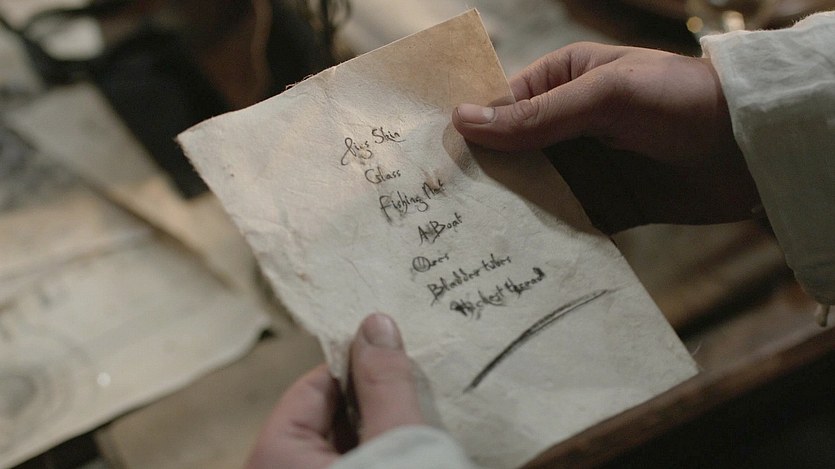 Pigs Skin
Glass
Fishing Net
A Boat
Oars
Bladder tubes
Thickest thread